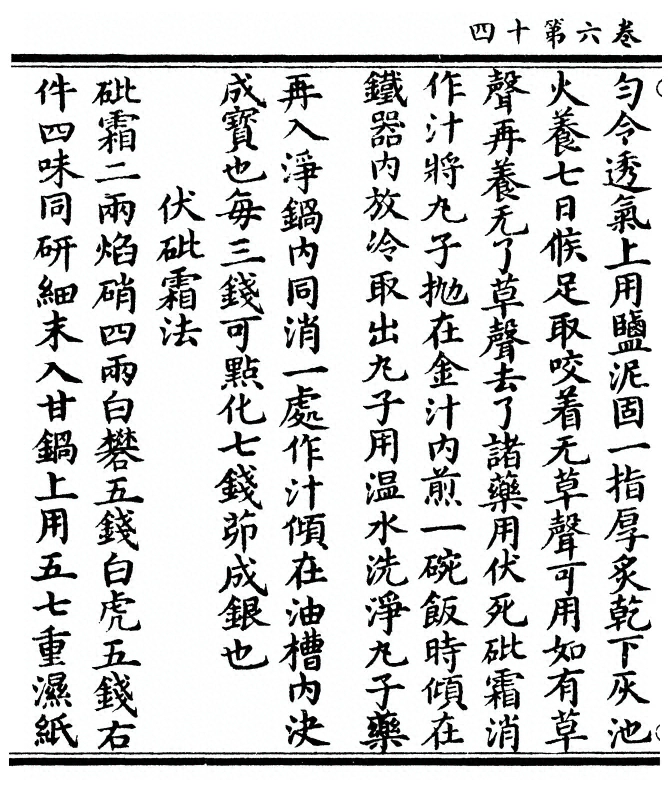 卷六第十四
勻令透氣上用鹽泥固一指厚炙乾下灰池
火養七日候足取咬着无草聲可用如有草
聲再養无了草聲去了諸藥用伏死砒霜消
作汁將丸子拋在金汁內煎一碗飯時傾在
鐵器內放冷取出丸子用温水洗淨丸子藥
再入淨鍋內同消一處作汁傾在油槽內決
成寳也每三錢可點化七錢茆成銀也
伏砒霜法
砒霜二兩焰硝四兩白礬五錢白虎五錢右
件四味同研細末入甘鍋上用五七重濕紙